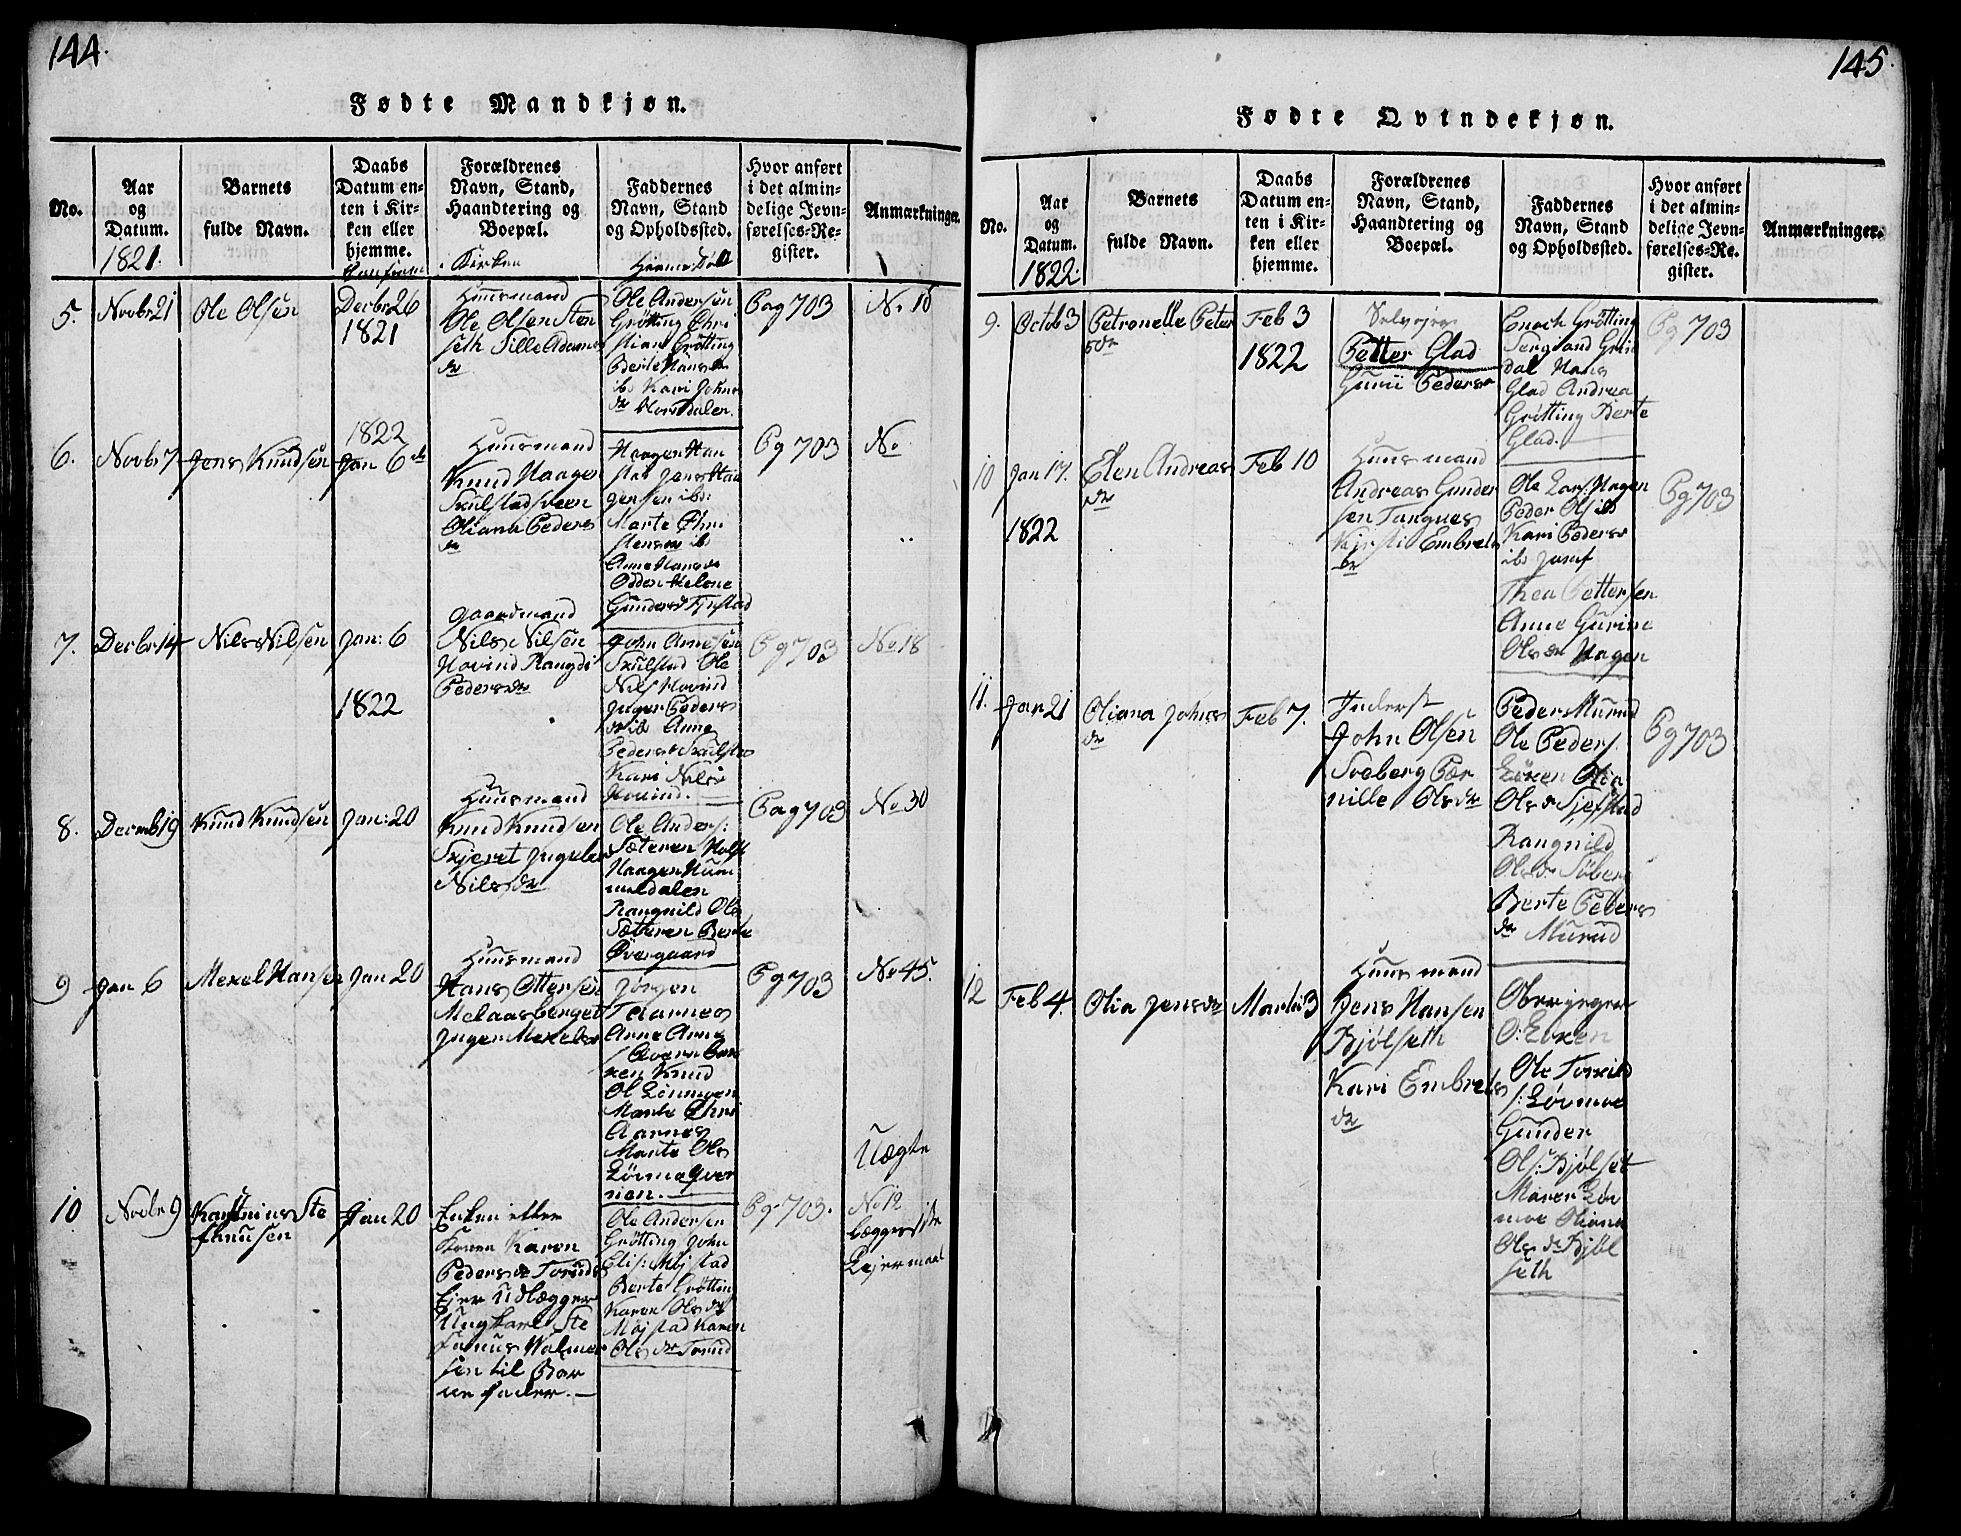 144.
Fødte Mandkjøn.
No.
Aar
og
Datum.
1821.
Barnets
fulde Navn.
Daabs
Datum en-
ten i Kir-
ken eller
hjemme.
Forældrenes
Navn, Stand,
Haandtering og
Boepæl.
Kirken
Faddernes
Navn, Stand
og Opholdssted.
Hvor anført
i det almin-
delige Jevn-
førelses-Re-
gister.
Anmærkninger.
5.
Novbr 21
Ole Olsen
Decbr 26
1821
Huusmand
Ole Olsen Sten
seth Sille Adams
dr
Ole Andersen
Grøtting Chri
stian Grøtting
Berte Hansdr
ibd Kari Johns
dr
Pag 703
No 10
6.
Novbr 7
Jens Knudsen
1822
Jan 6
Huusmand
Knud Haagen
Skulstadsveen
Oliana Peders
dr
Haagen Hau
stad Jens Haa
gensen ibd:
Marte Chri
stensdr ib
Anne Hansdr
Odden Helene
Gundersdr
Pg 703
No
7.
Decbr 14
Nils Nilsen
Jan: 6
1822
Gaardmand
Nils Nilsen
Hovind Rangdi
Pedersdr
John Arnesen
Skulstad Ole
Nils Hovind
Inger Peders
dr ib Anne
Pedersdr Skulstad
Kari Nilsdr
Hovind.
Pg 703
No. 18
8.
Decmb 19
Knud Knudsen
Jan: 20
Huusmand
Knud Knudsen
Skjeret Ingebor
Nilsdr
Ole Anders:
Sæteren Holst
Haagen Hum
meldalen
Rangnild Ols
Sætteren Berte
Øvergaard
Pag 703
No 30
9
Jan 6
Mekel Hansen
Jan 20
Huusmand
Hans Ottersen
Melaasberget
Inger Mekelsdr
Jørgen
Taarnes
Anne Arne
Knud
Marte Chri
Aarnes
Marte Ols
Pg 703
No 45.
10
Novbr 9
Karstinus Ste
fanusen
Jan 20
Enken
Konen Karen
Pedersdr Torud
Ejer Udlægger
Ungkarl Ste
fanus
sen til Bar
ne fader.
Ole Andersen
Grøtting John
Elis: Mojstad
Berte Grøtting
Karen Olsdr
Mojstad Karen
Olsdr Torud
Pg 703.
Uægte
No 12
Lejermaal
145.
Fødte Qvindekjøn.
No.
Aar
og
Datum.
1822.
Barnets
fulde Navn.
Daabs
Datum en-
ten i Kir-
ken eller
hjemme.
Forældrenes
Navn, Stand,
Haandtering og
Boepæl.
Faddernes
Navn, Stand
og Opholdssted.
Hvor anført
i det almin-
delige Jevn-
førelses-Re-
gister.
Anmærkninger.
9.
Octob 3
Petronelle Peter
sdr
Feb 3
1822
Selvejer
Petter Glad
Gurii Pedersdr
Enoch Grøtting
Sergeand Grin
dal Hans
Glad Andrea
Grøtting Berte
Glad.
Pg 703
10
Jan 17.
1822
Elen Andreas
dr
Feb 10
Huusmand
Andreas Gunder
sen Tangnes
Kjersti Embrets
dr
Ole Lars: Hagen
Peder Ols ib
Kari Pedersdr
ibd
Thea Pettersen
Anne Gurine
Olsdr Hagen
Pg 703
11.
Jan 21
Oliana Johns
dr
Feb 7.
Inderst
John Olsen
Soeberg Per
nille Olsdr
Peder Murud
Ole Peders.
Løken Olia
Olsdr Sjefstad
Rangnild
Olsdr Søberg
Berte Peders
dr Murud
Pg 703
12
Feb 4.
Olia Jensdr
Marts 3
Huusmand
Jens Hansen
Bjølseth
Kari Embrets
dr
Oberjeger
O: Løken
Ole Torkild
s: Løvmoe
Gunder
Ols: Bjølset
Maren Løv
moe Oliana
Olsdr Bjøl
seth